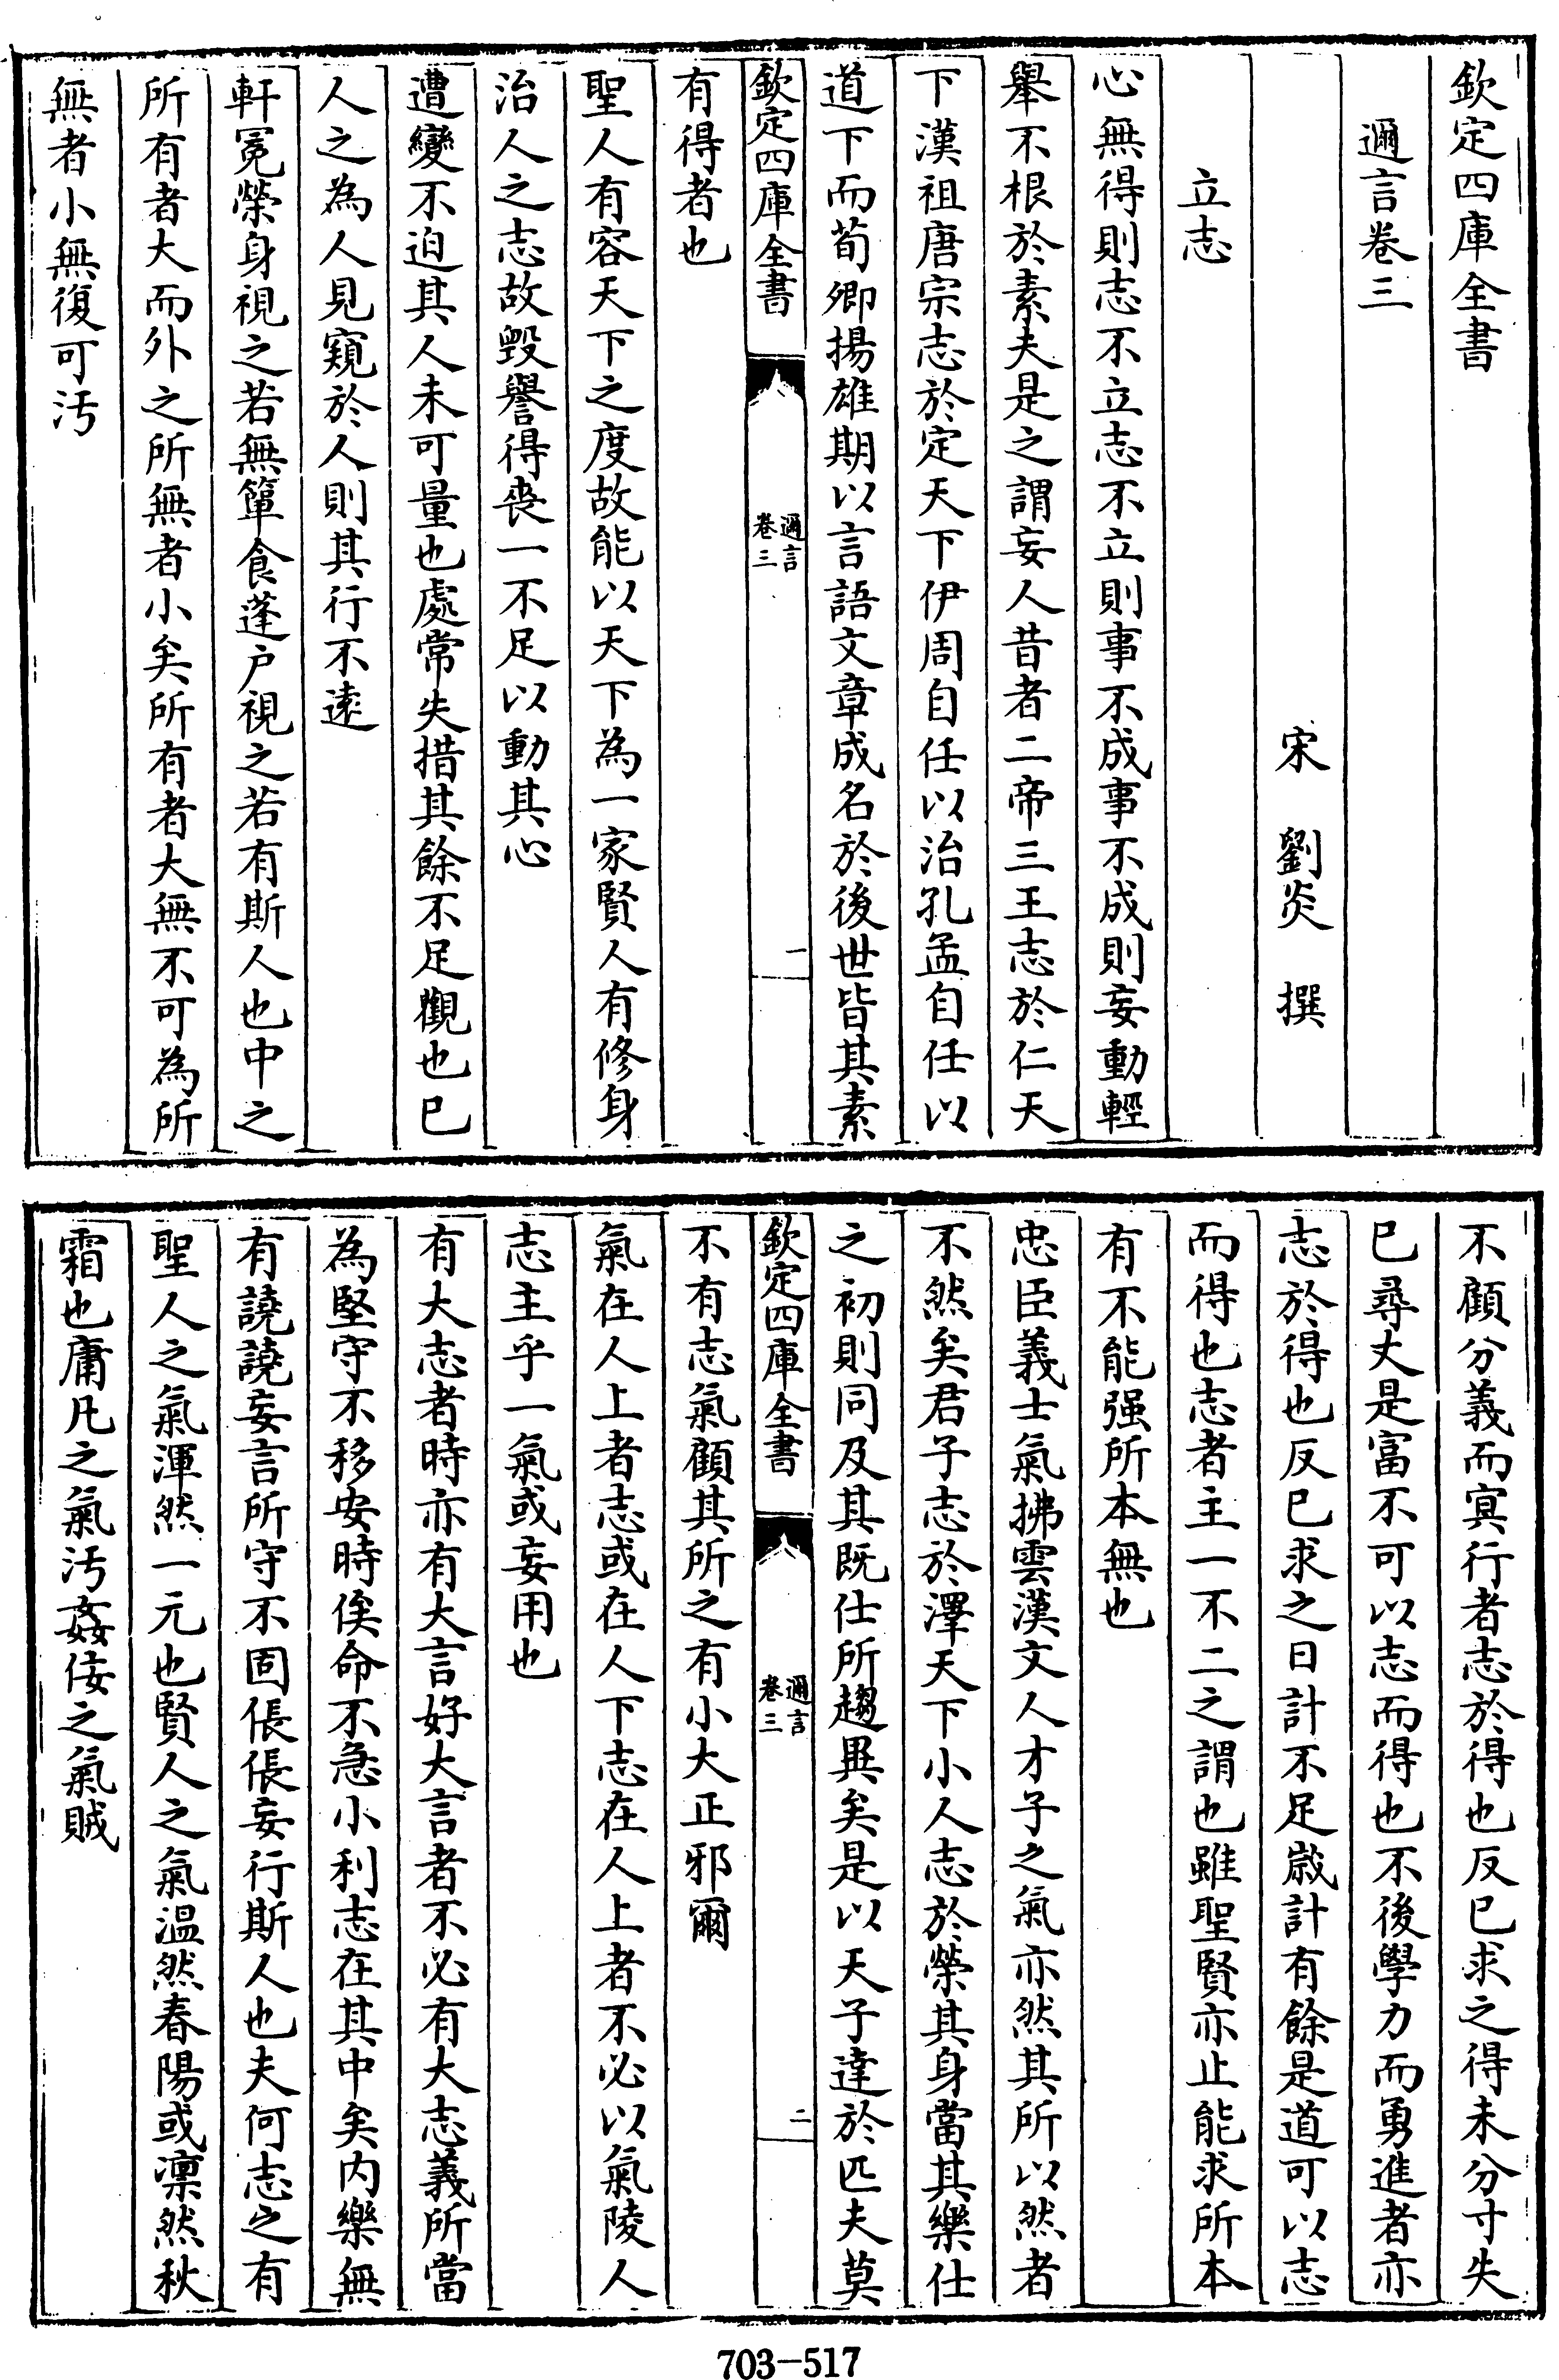 欽定四庫全書
邇言卷三
宋 劉炎 撰
立志
心無得則志不立志不立則事不成事不成則妄動輕
舉不根於素夫是之謂妄人昔者二帝三王志於仁天
下漢祖唐宗志於定天下伊周自任以治孔孟自任以
道下而荀卿揚雄期以言語文章成名於後世皆其素
欽定四庫全書 邇言卷三 一
有得者也
聖人有容天下之度故能以天下為一家賢人有修身
治人之志故毀譽得喪一不足以動其心
遭變不迫其人未可量也處常失措其餘不足觀也已
人之為人見窺於人則其行不遠
軒冕榮身視之若無簞食蓬戶視之若有斯人也中之
所有者大而外之所無者小矣所有者大無不可為所
無者小無復可汚
不顧分義而冥行者志於得也反已求之得未分寸失
已尋丈是富不可以志而得也不後學力而勇進者亦
志於得也反已求之日計不足歲計有餘是道可以志
而得也志者主一不二之謂也雖聖賢亦止能求所本
有不能强所本無也
忠臣義士氣拂雲漢文人才子之氣亦然其所以然者
不然矣君子志於澤天下小人志於榮其身當其樂仕
之初則同及其既仕所趨異矣是以天子達於匹夫莫
欽定四庫全書 邇言卷三 二
不有志氣顧其所之有小大正邪爾
氣在人上者志或在人下志在人上者不必以氣陵人
志主乎一氣或妄用也
有大志者時亦有大言好大言者不必有大志義所當
為堅守不移安時俟命不急小利志在其中矣內樂無
有譊譊妄言所守不固倀倀妄行斯人也夫何志之有
聖人之氣渾然一元也賢人之氣溫然春陽或凛然秋
霜也庸凡之氣汚姦佞之氣賊
703-517